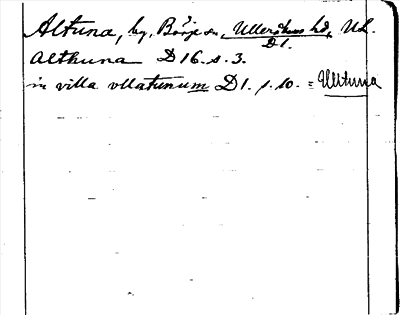 Altuna, by, Börje sn, Ulleråkers hd, UL.
D1.
Althuna D16. s. 3.
in villa vllatunum D1. s. 10. = Ulltuna